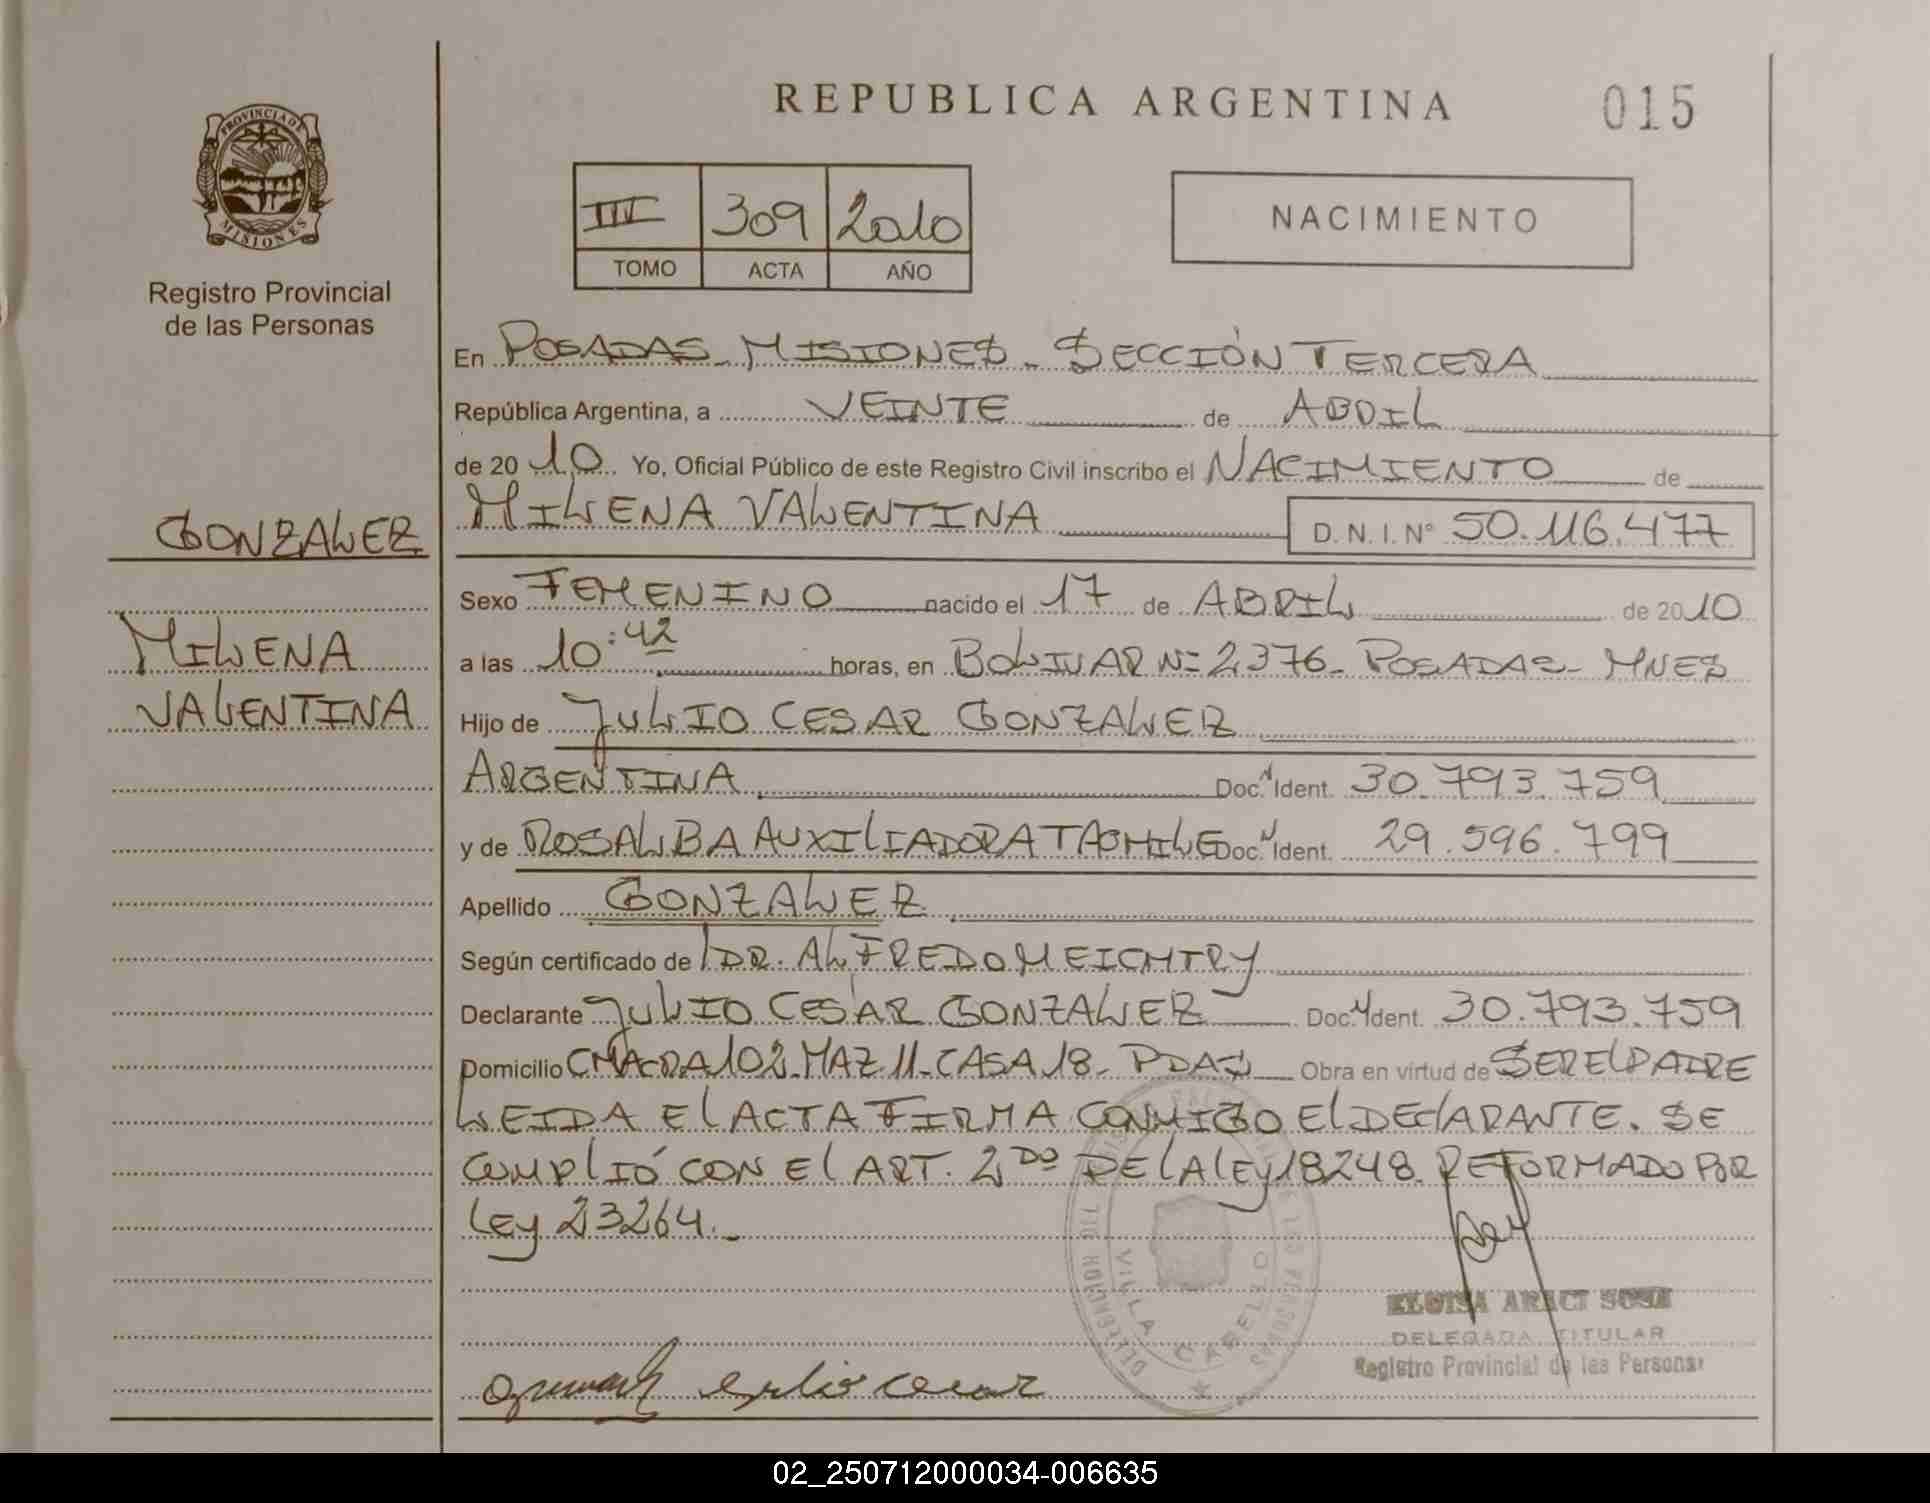 REPUBLICA ARGENTINA
015
PROVINCIA DE
MISIONES
Registro Provincial
de las Personas
III 309 2010
TOMO ACTA AÑO
NACIMIENTO
En POSADAS - MISIONES - SECCIÓN TERCERA
República Argentina, a VEINTE de ABRIL
de 2010 Yo, Oficial Público de este Registro Civil inscribo el NACIMIENTO de
GONZALEZ
MILENA VALENTINA
D.N.I. Nº 50.116.477
Sexo FEMENINO nacido el 17 de ABRIL de 2010
MILENA
VALENTINA
a las 10:42 horas, en BOLIVAR Nº 2376 - POSADAS - MNES
Hijo de JULIO CESAR GONZALEZ
ARGENTINA Doc. N Ident. 30.793.759
y de ROSALBA AUXILIADORA Doc. N Ident. 29.596.799
Apellido GONZALEZ
Según certificado de DR. ALFREDO MEICHTRY
Declarante JULIO CESAR GONZALEZ Doc. N Ident. 30.793.759
Domicilio CHACRA 102 - MAZ 11 - CASA 18 - PDAS Obra en virtud de SER EL PADRE
LEIDA El ACTA FIRMA CONMIGO El DEClARANTE. SE
CUMPLIÓ CON El ART. 2DO DE LA LEY 18248 REFORMADO POR
LEY 23264.-
VILLA CABELLO
ELOISA ARACI SOSA
DELEGADA TITULAR
Registro Provincial de las Personas
02_250712000034-006635